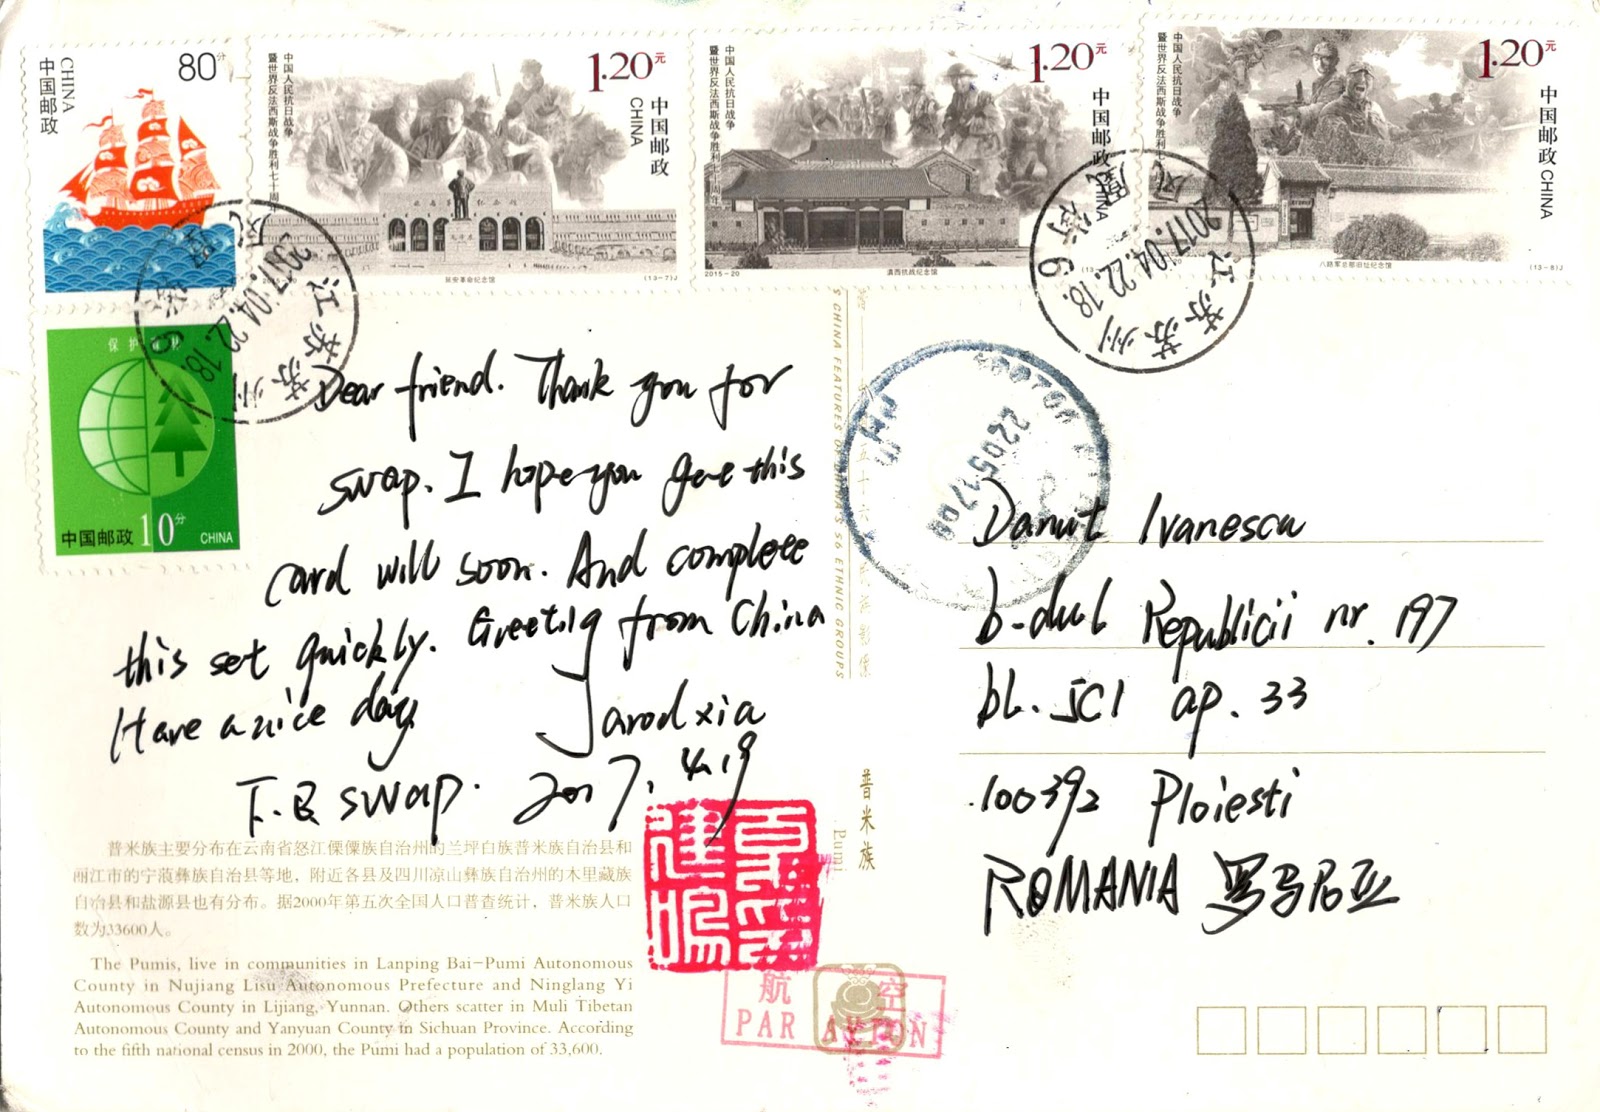 CHINA
中国邮政
80分
中国人民抗日战争
暨世界反法西斯战争胜利七十周年
1.20元
中国邮政
CHINA
延安革命纪念馆
(13-7)J
中国人民抗日战争
暨世界反法西斯战争胜利七十周年
1.20元
中国邮政
CHINA
2015-20
滇西抗战纪念馆
中国人民抗日战争
暨世界反法西斯战争胜利七
1.20元
中国邮政 CHINA
八路军总部旧址纪念馆
(13-8)J
江苏苏州
2017.04.22.18.
江苏苏州
2017.04.22.18.
保护
中国邮政 10分 CHINA
Dear friend. Thank you for
swap. I hope you gete this
card will soon. And complete
this set quickly. Greetig from China
Have a nice day.
Jarodxia
T.B swap. 2017.4.19
普米族主要分布在云南省怒江傈僳族自治州的兰坪白族普米族自治县和
丽江市的宁蒗彝族自治县等地，附近各县及四川凉山彝族自治州的木里藏族
自治县和盐源县也有分布。据2000年第五次全国人口普查统计，普米族人口
数为33600人。
The Pumis, live in communities in Lanping Bai-Pumi Autonomous
County in Nujiang Lisu Autonomous Prefecture and Ninglang Yi
Autonomous County in Lijiang, Yunnan. Others scatter in Muli Tibetan
Autonomous County and Yanyuan County in Sichuan Province. According
to the fifth national census in 2000, the Pumi had a population of 33,600.
CHINA FEATURES OF CHINA'S 56 ETHNIC GROUPS
普米族
Pumi
航空
PAR AVION
Danut Ivanescu
b-dul Republicii nr. 197
bl. JC1 ap. 33
100392 Ploiesti
ROMANIA 罗马尼亚